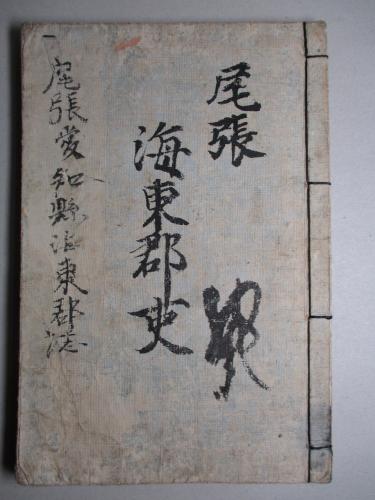 尾張
海東郡吏
尾張愛知縣海東郡誌